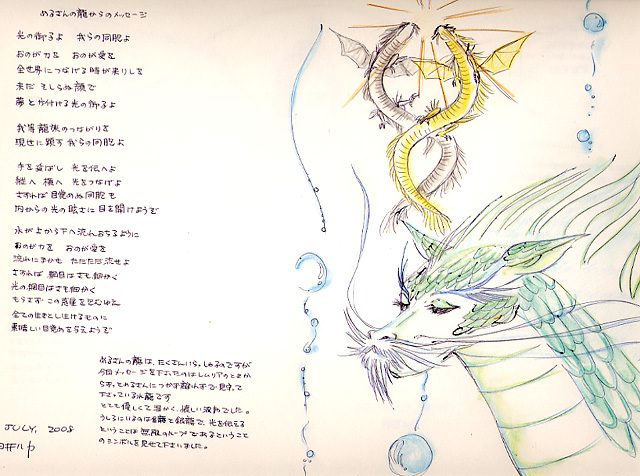 めるさんの龍からのメッセージ
光の御子よ 我らの同胞よ
おのが力を おのが愛を
全世界につなげる時が来りしを
未だ そしらぬ顔で
夢と片付ける光の御子よ
我等龍族のつながりを
現せに顕す我らの同胞よ
手を延ばし 光を伝へよ
縦へ 横へ 光をつなげよ
さすれば 目覚めぬ同胞も
内からの光の眩さに目を開けようぞ
水が上から下へ流れおちるように
おのが力を おのが愛を
流れにまかせ ただただ流せよ
さすれば 網目はさも細かく
光の網目はさも細かく
もうすぐ この惑星を包むゆえ
全ての生きとし生けるものに
素晴しい目覚めを与えようぞ
めるさんの龍は、たくさんいらっしゃるのですが
今回メッセージを下さったのはレムリアのときか
らずっとめるさんにつかず離れずで見守って
下さっている水龍です
とても優しくて温かく、優しい波動でした。
うしろにいるのは金龍と銀龍で、光を伝える
ということは無限のループであるということ
のシンボルを見せて下さいました。
JULY, 2008